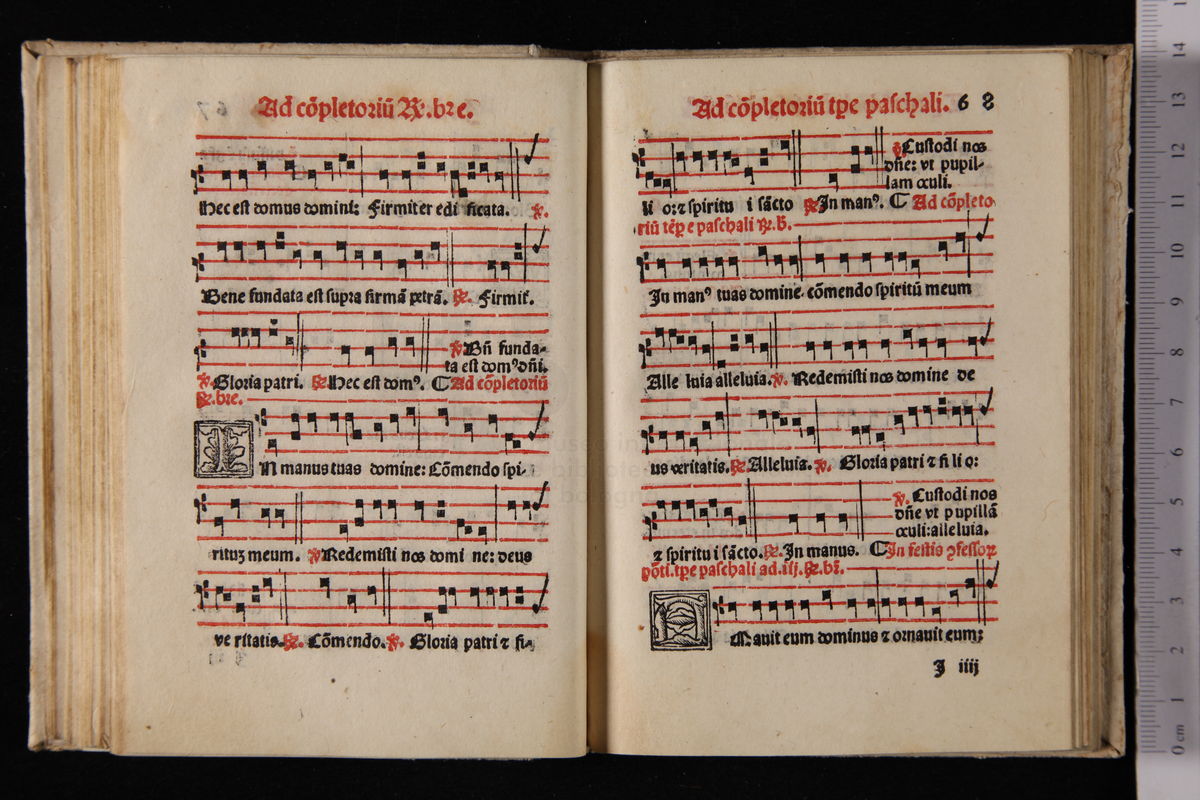 Ad cõpletoriũ ℟.bre.
Hec est domus domini: Firmiter edi ficata. ℣.
Bene fundata est supra firmã petrã. ℟. Firmit̃.
℣ Bñ funda-
ta est domꝰ dñi.
℣ Gloria patri. ℟ Hec est domꝰ. ℂ Ad cõpletoriũ
℟.bre.
IN manus tuas domine: Cõmendo spi-
rituȝ meum. ℣ Redemisti nos domi ne: deus
ve ritatis ℟. Cõmendo. ℣. Gloria patri ⁊ fi-
Ad cõpletoriũ tꝑe paschali. 68
℣ Custodi nos
dñe: vt pupil-
lam oculi.
li o: ⁊ spiritu i sãcto ℟ In manꝰ. ℂ Ad cõpleto
riũ tẽꝑe paschali ℟.b̃.
In manꝰ tuas domine. cõmendo spiritũ meum
Alle luia alleluia. ℣. Redemisti nos domine de
us veritatis. ℟. Alleluia. ℣. Gloria patri ⁊ fi li o:
℣. Custodi nos
dñe vt pupillã
oculi: alleluia.
⁊ spiritu i sãcto. ℟. In manus. ℂ In festis ꝯfessoꝝ
põti. tꝑe paschali ad .iij. ℟.br̃.
AMauit eum dominus ⁊ ornauit eum:
J iiij
0 cm 1 2 3 4 5 6 7 8 9 10 11 12 13 14